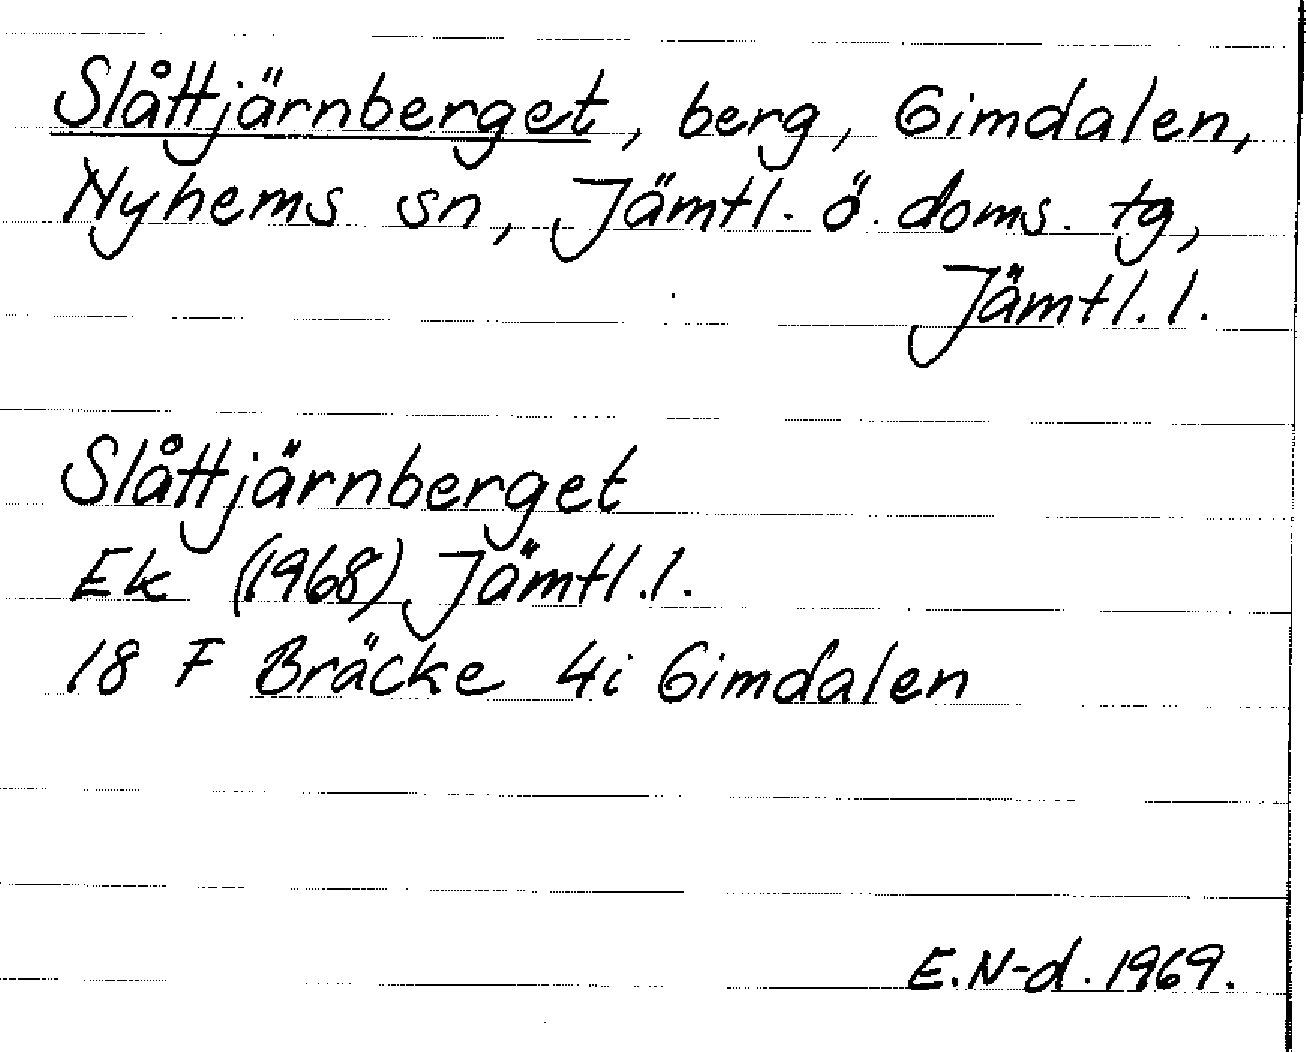 Slåttjärnberget, berg, Gimdalen,
Nyhems sn, Jämtl. ö. doms. tg,
Jämtl. l.
Slåttjärnberget
Ek (1968) Jämtl. l.
18 F Bräcke 4i Gimdalen
E. N-d. 1969.